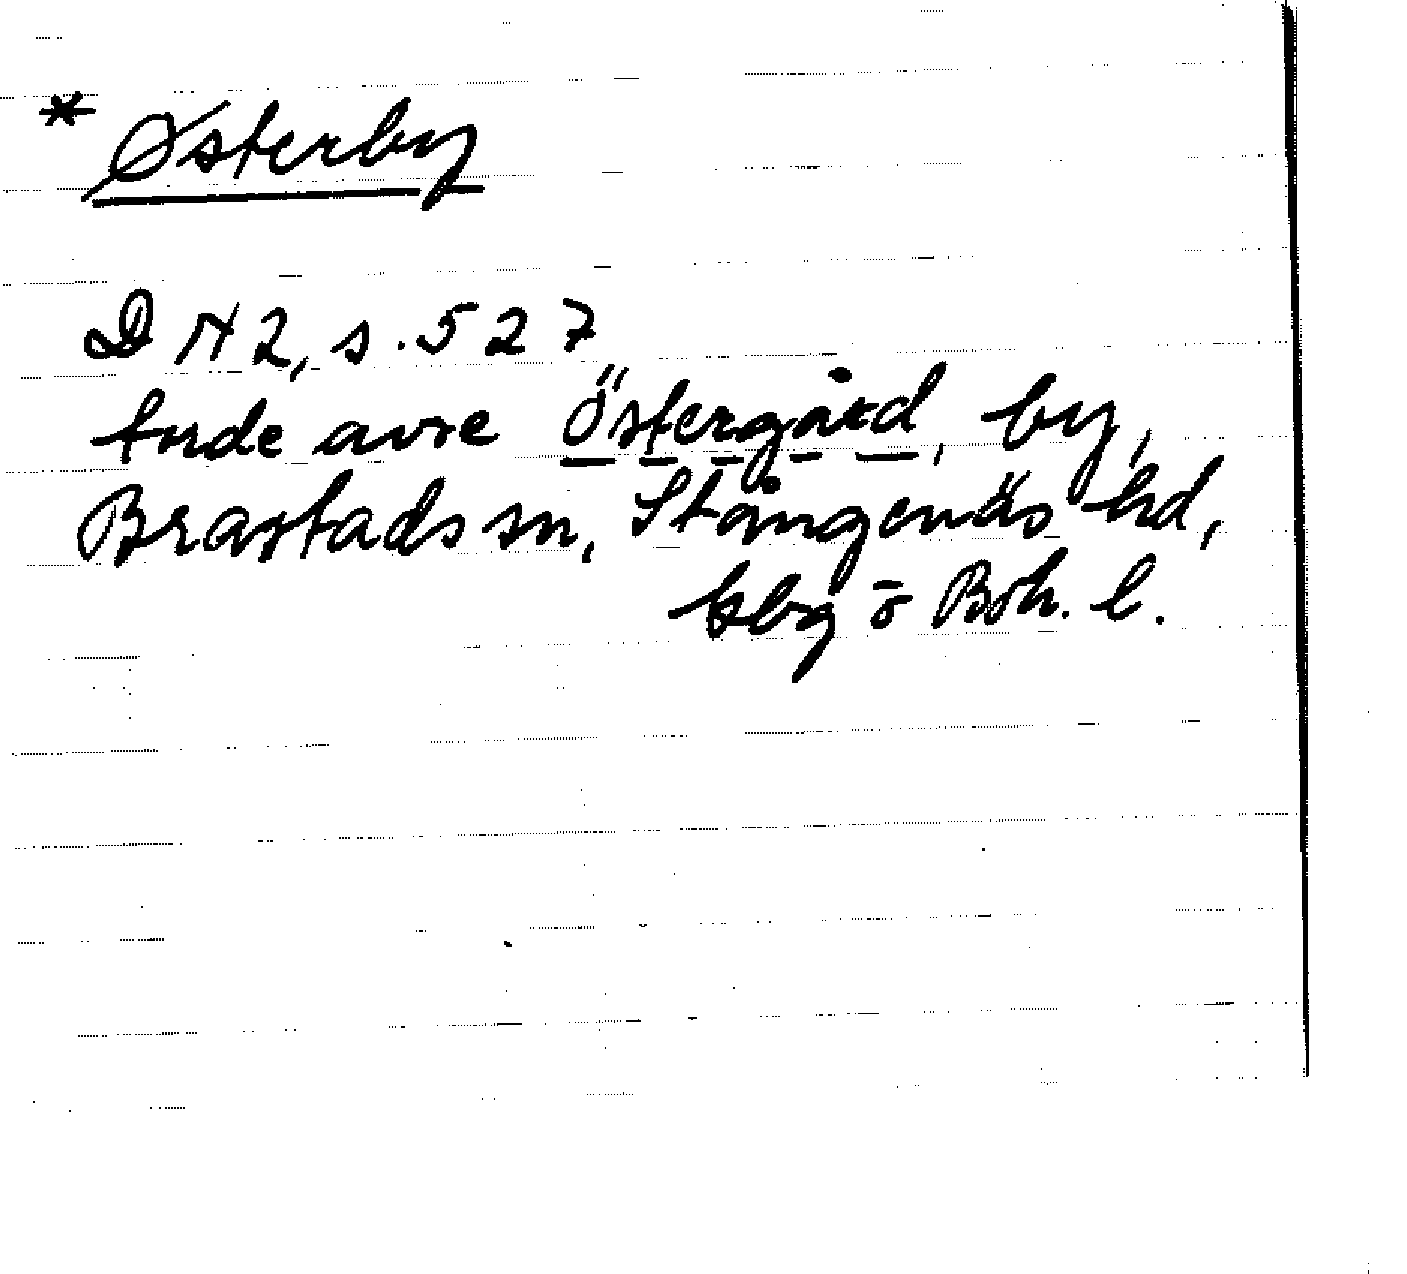 * Østerby
D N 2, s. 527
torde avse Östergård, by,
Brastads sn, Stångenäs hd,
Gbg o Boh. l.